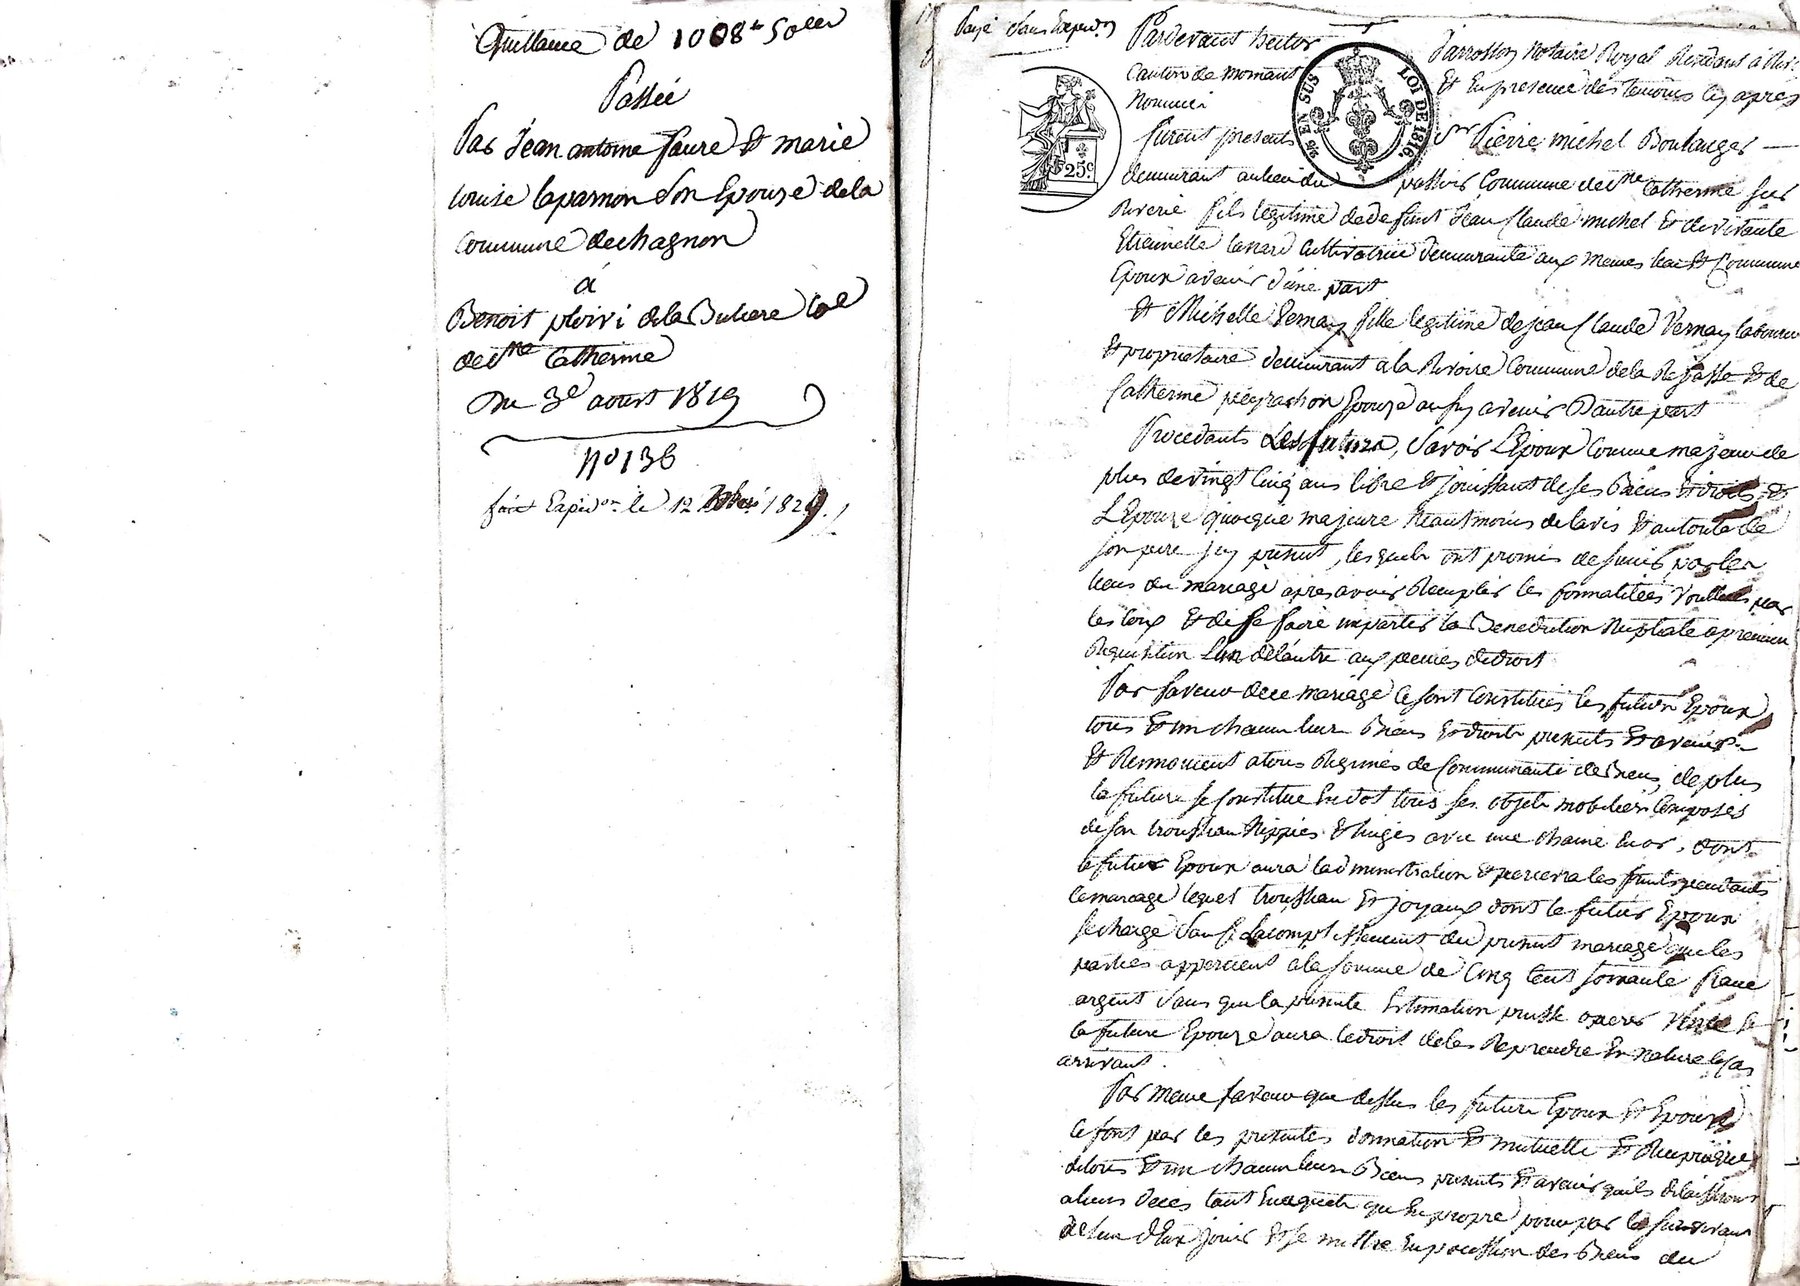 Quittance de 1008 50
Passée
Par Jean antoine faure Et marie
louise laparnon Son Epouze de la
commune de chagnon
à
Benoit ploivi de la Buliere Coe
de Ste Catherine
Du 3e aoust 1819
No 136
fait Expedon le 12 1829
Payé Sans Expon
Pardevant hector Parrossoy Notaire Royal Residant à Riv
Canton de mornant Et En presence des temoins cy apres
Nommés
furent presents Sr Pierre michel Boulanger
25c
EN SUS
LOI DE 1816
demeurant au lieu du passoir Commune de Ste Catherine sur
Riverie fils legitime de defunt Jean Claude michel Et de vivante
Etiennette Cultivatrice demeurante aux memes lieu Et Commune
Epoux avenir d'une part
Et Michelle Vernay fille legitime de jean Claude Vernay laboureur
Et proprietaire demeurant a la Rivoire Commune de la Rajasse Et de
Catherine peyrachon Epouze aussy avenir D'autre part
Procedants Les futurs, Savoir L'Epoux Comme majeur de
plus de vingt Cinq ans libre Et Jouissant de ses Biens Et droits Et
L'Epouze quoique majeure Neantmoins de l'avis Et autorité de
son pere Icy present, lesquels ont promis de s'unir par les
liens du mariage apres avoir Remplir les formalitées Voullues par
les loix Et de se faire impartir la Benediction Nuptiale a premiere
Requisition L'un de l'autre aux peines de droit
Par faveur de ce mariage Ce sont Constitués les futurs Epoux
tous Et un chacun leurs Biens Et droits presents Et avenirs
Et Renoncent a tous Regimes de Communauté de Biens, de plus
la future se Constitue En dot tous ses objets mobiliers Composés
de son trousseau Nippes Et linges avec une chaine En or, dont
le futur Epoux aura l'administration Et percevra les fruits pendants
le mariage lequel trousseau Et joyaux dont le futur Epoux
se charge Sauf L'accomplissement du present mariage que les
parties appercient a la somme de Cinq Cent soixante francs
argent Sans que la presente Estimation puisse operer Vente Et
la future Epouze aura le droit de les Reprendre En nature le Cas
arrivant.
Par meme faveur que dessus les future Epoux Et Epouze
Ce font par les presentes donnation Et mutuelle Et Reciproque
de tous Et un chacun leurs Biens presents Et avenir qu'ils delaisseront
a leurs deces tant En aquets qu'En propre pour par le survivant
de l'un d'Eux jouir Et se mettre En possession des Biens du